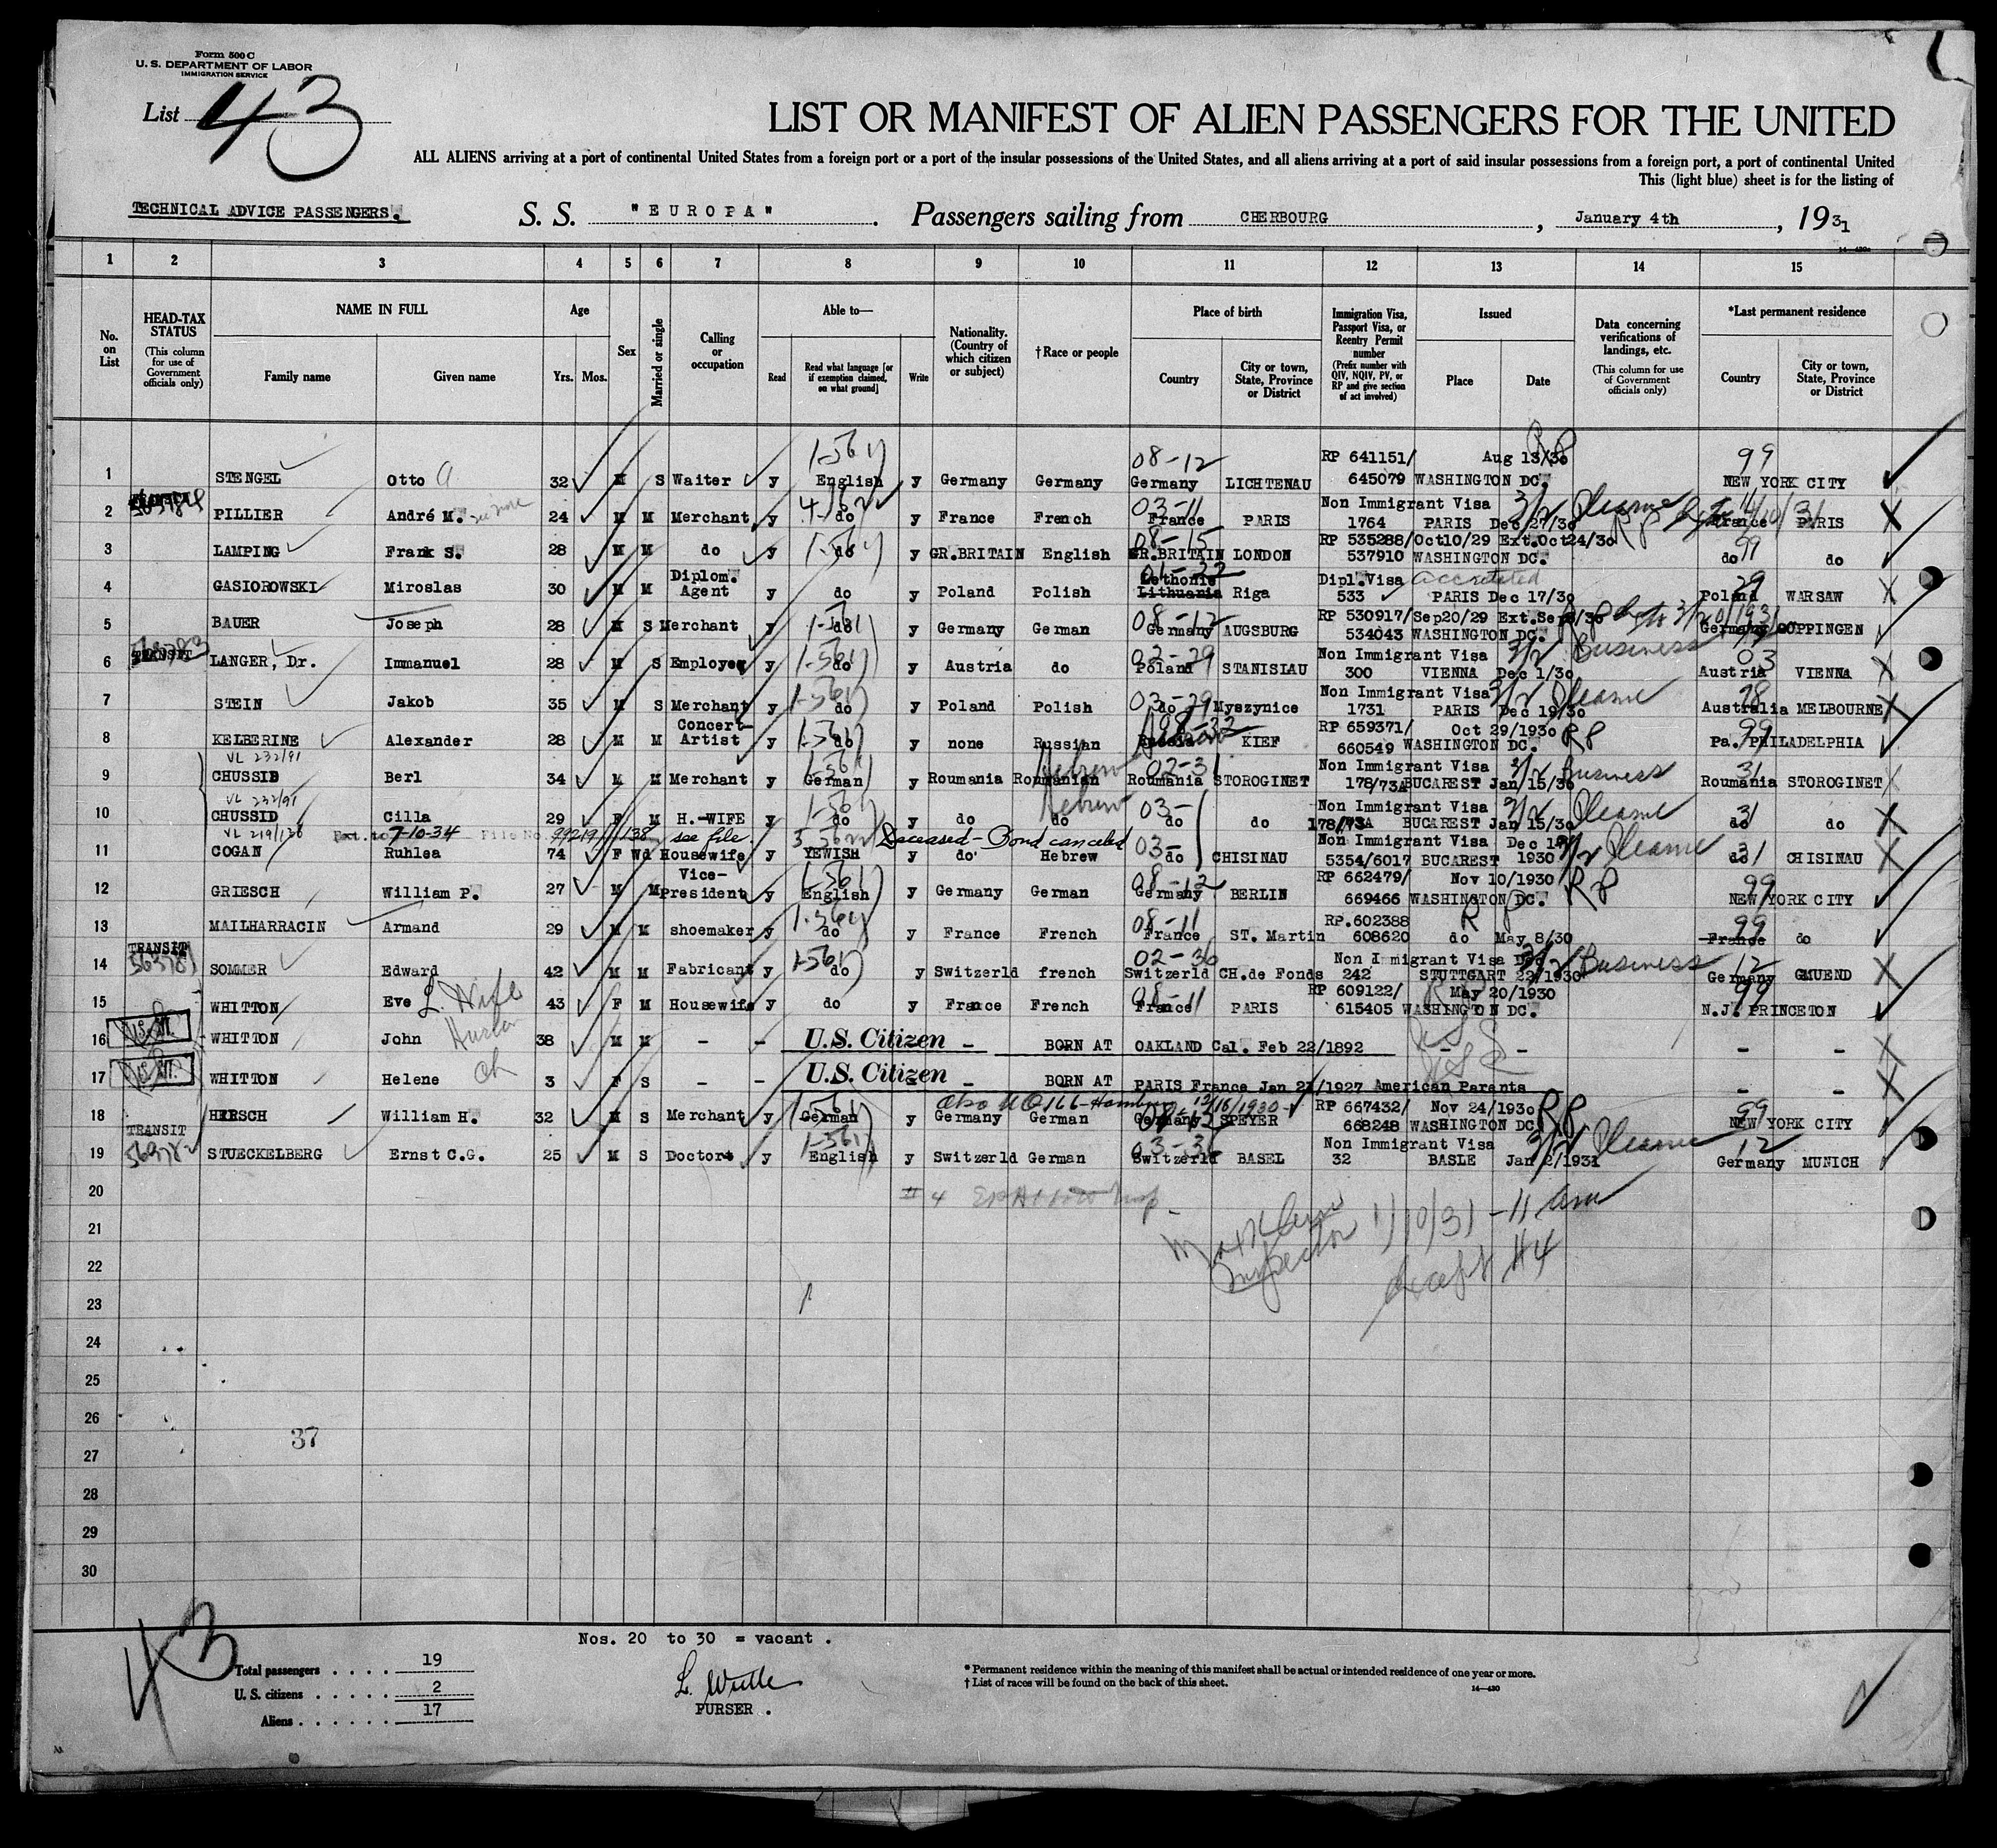 Form 500 C
U. S. DEPARTMENT OF LABOR
IMMIGRATION SERVICE
List 43
LIST OR MANIFEST OF ALIEN PASSENGERS FOR THE UNITED
ALL ALIENS arriving at a port of continental United States from a foreign port or a port of the insular possessions of the United States, and all aliens arriving at a port of said insular possessions from a foreign port, a port of continental United
This (light blue) sheet is for the listing of
TECHNICAL ADVICE PASSENGERS. S. S. "EUROPA". Passengers sailing from CHERBOURG, January 4th, 1931
1 2 3 4 5 6 7 8 9 10 11 12 13 14 15
No. on List
HEAD-TAX STATUS (This column for use of Government officials only)
NAME IN FULL Family name Given name
Age Yrs. Mos.
Sex
Married or single
Calling or occupation
Able to— Read Read what language [or if exemption claimed, on what ground] Write
Nationality. (Country of which citizen or subject)
†Race or people
Place of birth Country City or town, State, Province or District
Immigration Visa, Passport Visa, or Reentry Permit number (Prefix number with QIV, NQIV, PV, or RP and give section of act involved)
Issued Place Date
Data concerning verifications of landings, etc. (This column for use of Government officials only)
*Last permanent residence Country City or town, State, Province or District
08-12 RP 641151/ Aug 13/30 RP 99
1 STENGEL Otto A 32 M S Waiter y English y Germany Germany Germany LICHTENAU 645079 WASHINGTON DC. NEW YORK CITY
03-11 Non Immigrant Visa 3/2 Pleasure
2 PILLIER André M. 24 M M Merchant y do y France French France PARIS 1764 PARIS Dec 27/30 France PARIS
08-15 RP 535288/Oct10/29 Ext.Oct24/30 RP 99
3 LAMPING Frank S. 28 M M do y do y GR.BRITAIN English GR.BRITAIN LONDON 537910 WASHINGTON DC. do do
Diplom. Lethonie Dipl.Visa accredited 29
4 GASIOROWSKI Miroslas 30 M M Agent y do y Poland Polish Lithuania Riga 533 PARIS Dec 17/30 Poland WARSAW
08-12 RP 530917/Sep20/29 Ext.Sep8/30 RP
5 BAUER Joseph 28 M S Merchant y do y Germany German Germany AUGSBURG 534043 WASHINGTON DC. Germany GÖPPINGEN
TRANSIT 02-29 Non Immigrant Visa 3/2 Business 03
6 LANGER, Dr. Immanuel 28 M S Employee y do y Austria do Poland STANISLAU 300 VIENNA Dec 1/30 Austria VIENNA
03-29 Non Immigrant Visa 3/2 Pleasure
7 STEIN Jakob 35 M S Merchant y do y Poland Polish do Myszynice 1731 PARIS Dec 19/30 Australia MELBOURNE
Concert- RP 659371/ Oct 29/1930 RP 99
8 KELBERINE Alexander 28 M M Artist y do y none Russian Russia KIEF 660549 WASHINGTON DC. Pa. PHILADELPHIA
VL 232/91 Hebrew 02-31 Non Immigrant Visa 3/2 Business 31
9 CHUSSID Berl 34 M M Merchant y German y Roumania Roumanian Roumania STOROGINET 178/73A BUCAREST Jan 15/30 Roumania STOROGINET
VL 232/91 Hebrew 03- Non Immigrant Visa 3/2 Pleasure 31
10 CHUSSID Cilla 29 F M H.-WIFE y do y do do do do 178/73A BUCAREST Jan 15/30 do do
VL 219/138 Ext. to 7-10-34 File No. 99219/138 see file. Deceased - Bond canceled 03- Non Immigrant Visa Dec 1 3/2 Pleasure 31
11 COGAN Ruhlea 74 F Wd Housewife y YEWISH y do Hebrew do CHISINAU 5354/6017 BUCAREST 1930 do CHISINAU
Vice- 08-12 RP 662479/ Nov 10/1930 RP 99
12 GRIESCH William P. 27 M M President y English y Germany German Germany BERLIN 669466 WASHINGTON DC. NEW YORK CITY
08-11 RP.602388 RP 99
13 MAILHARRACIN Armand 29 M M shoemaker y do y France French France ST. Martin 608620 do May 8/30 France do
TRANSIT 02-36 Non Immigrant Visa Dec 3/2 Business 12
14 SOMMER Edward 42 M M Fabricant y do y Switzerld french Switzerld CH.de Fonds 242 STUTTGART 22/1930 Germany GMUEND
Wife 08-11 RP 609122/ May 20/1930 99
15 WHITTON Eve L. 43 F M Housewife y do y France French France PARIS 615405 WASHINGTON DC. N.J. PRINCETON
16 WHITTON John 38 M M - - U.S. Citizen - BORN AT OAKLAND Cal. Feb 22/1892 - - - -
17 WHITTON Helene Ch 3 F S - - U.S. Citizen - BORN AT PARIS France Jan 21/1927 American Parants - -
Also 12/16/1930 RP 667432/ Nov 24/1930 RP 99
18 HIRSCH William H. 32 M S Merchant y German y Germany German Germany SPEYER 668248 WASHINGTON DC NEW YORK CITY
TRANSIT 03-36 Non Immigrant Visa 3/2 Pleasure 12
19 STUECKELBERG Ernst C.G. 25 M S Doctor y English y Switzerld German Switzerld BASEL 32 BASLE Jan 2/1931 Germany MUNICH
20 # 4
21 1/10/31 - 11 am
22 Inspector except #4
23
24
25
26
37
27
28
29
30
43
Nos. 20 to 30 = vacant .
Total passengers . . . . . 19
U. S. citizens . . . . . 2
Aliens . . . . . . 17
PURSER .
* Permanent residence within the meaning of this manifest shall be actual or intended residence of one year or more.
† List of races will be found on the back of this sheet.
14—430